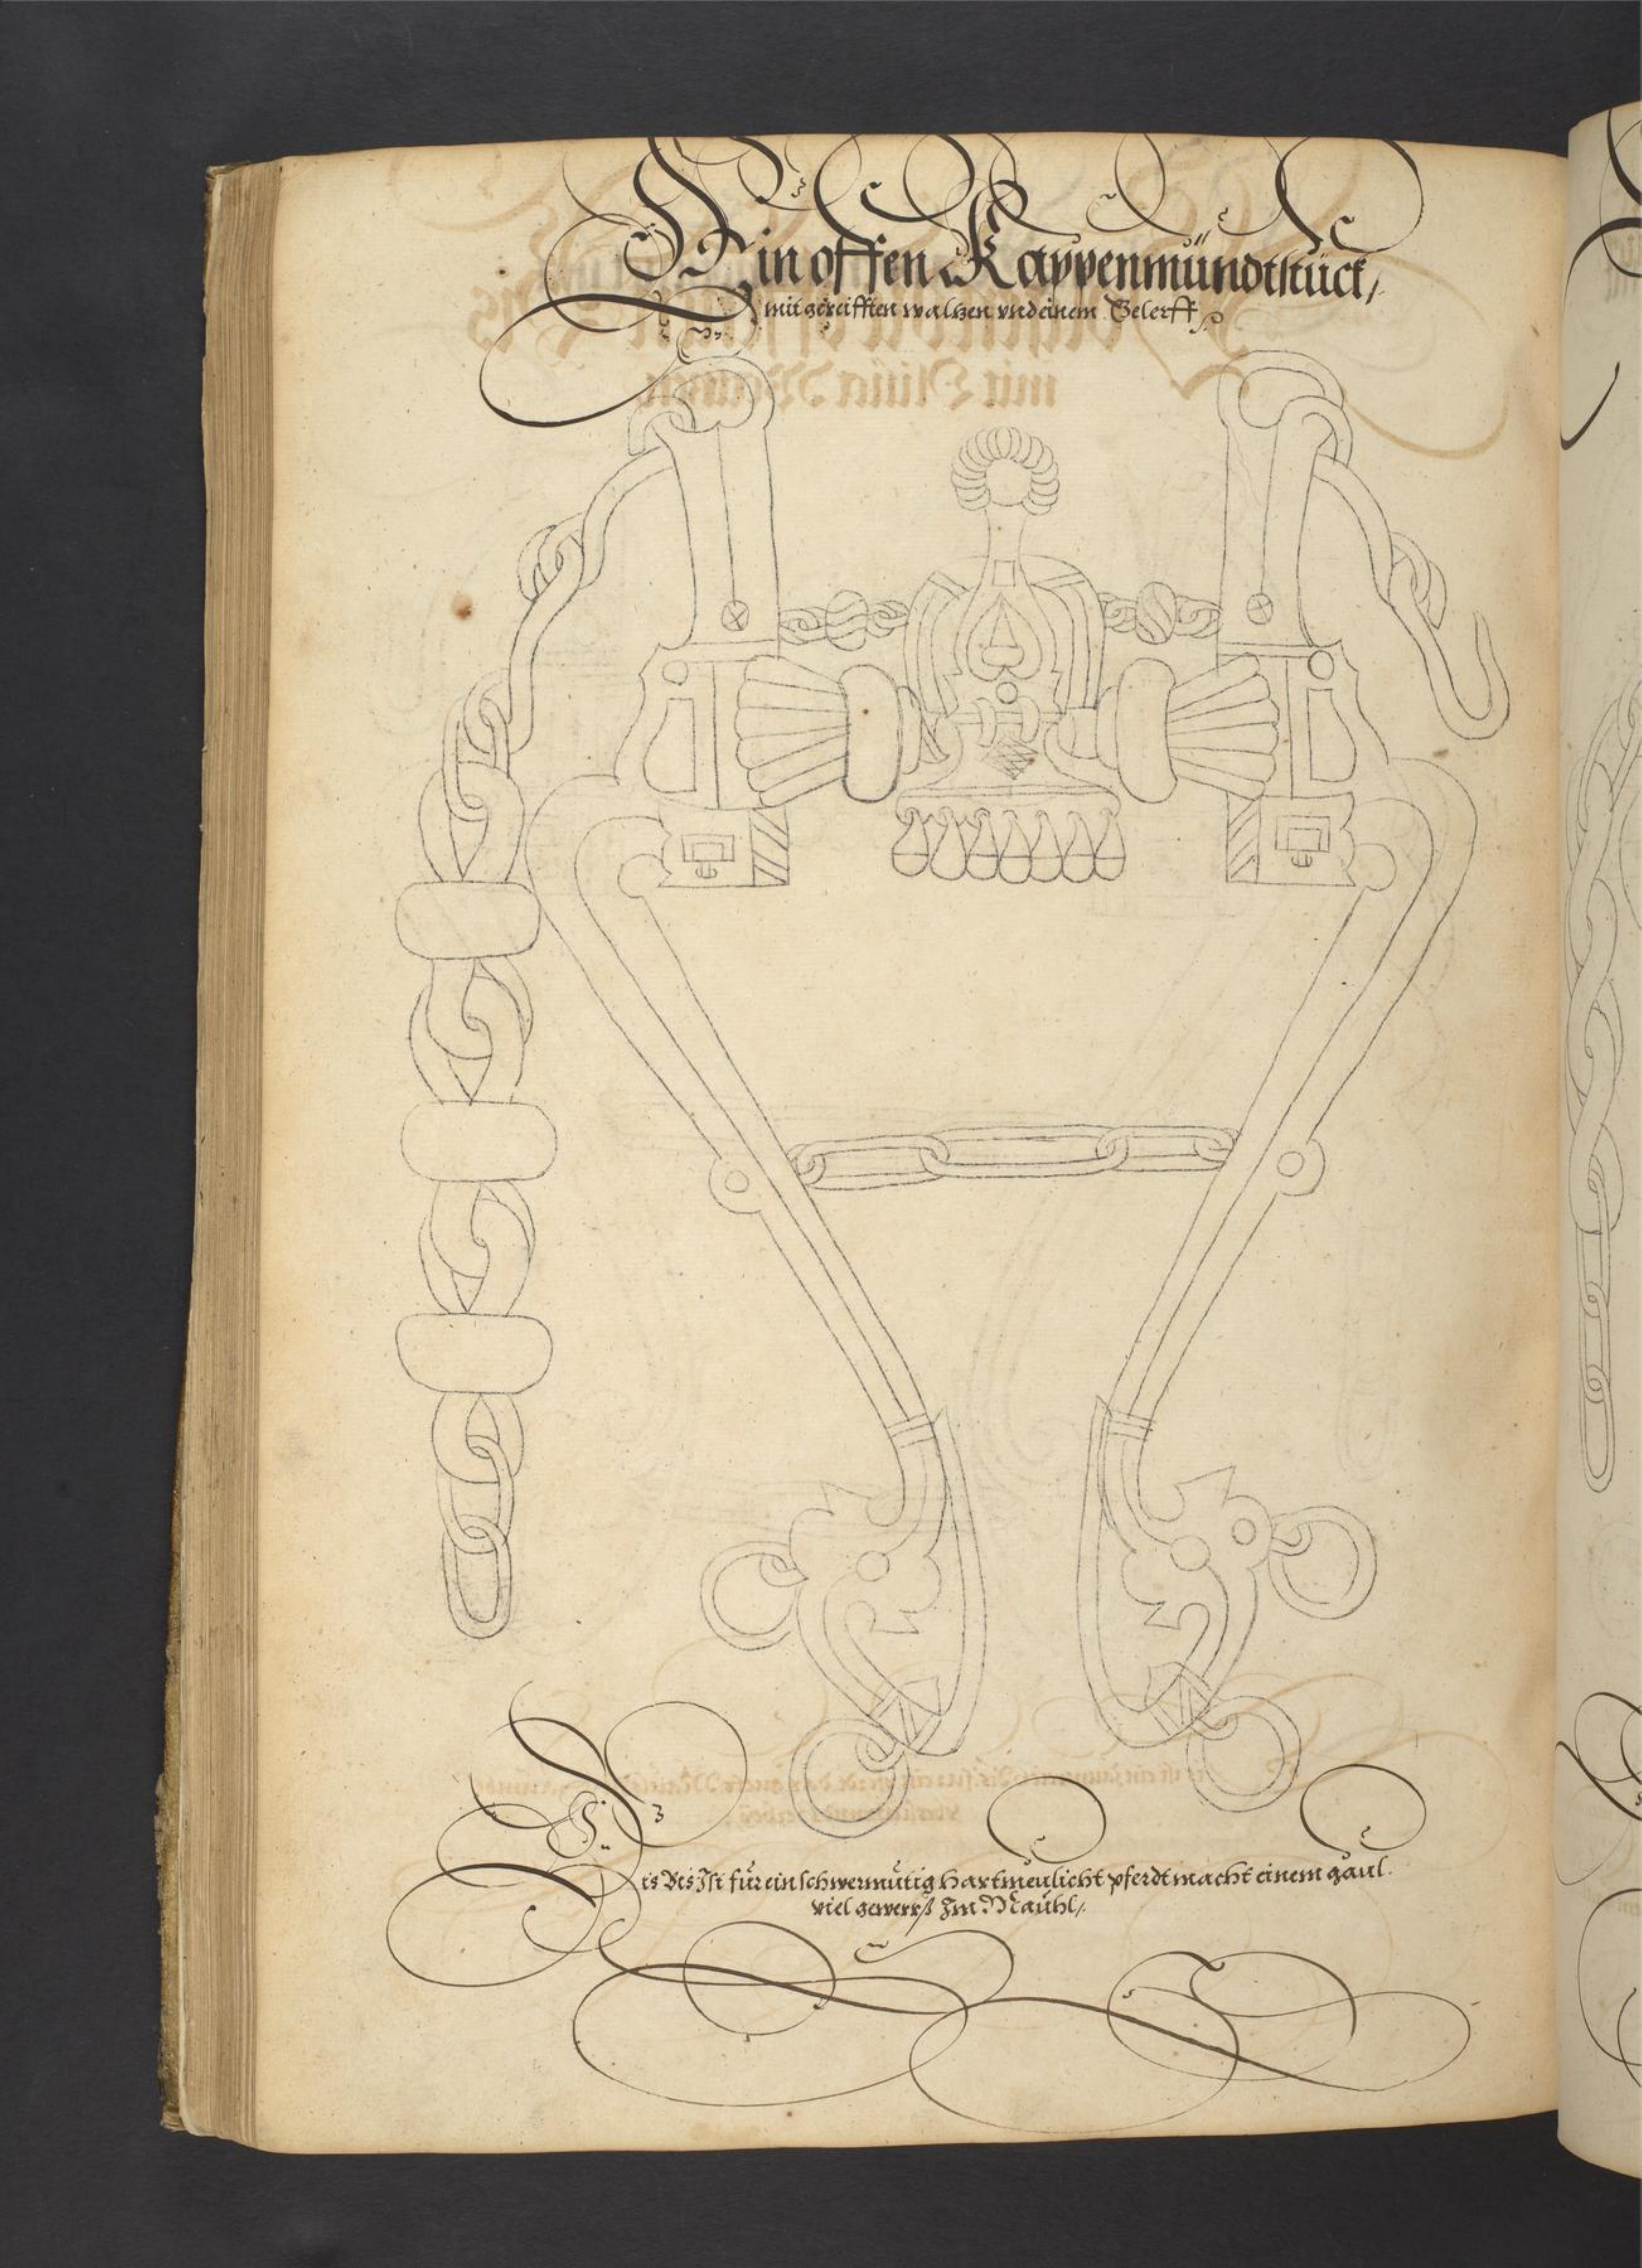 Ein offen Kappenmündtstück,
mit gereifften waltzen vnd einem Gelerff
Dis Bis Ist für ein schwermütig Hartmeulicht pferdt macht einem gaul
viel gewerß Im Mauhl,